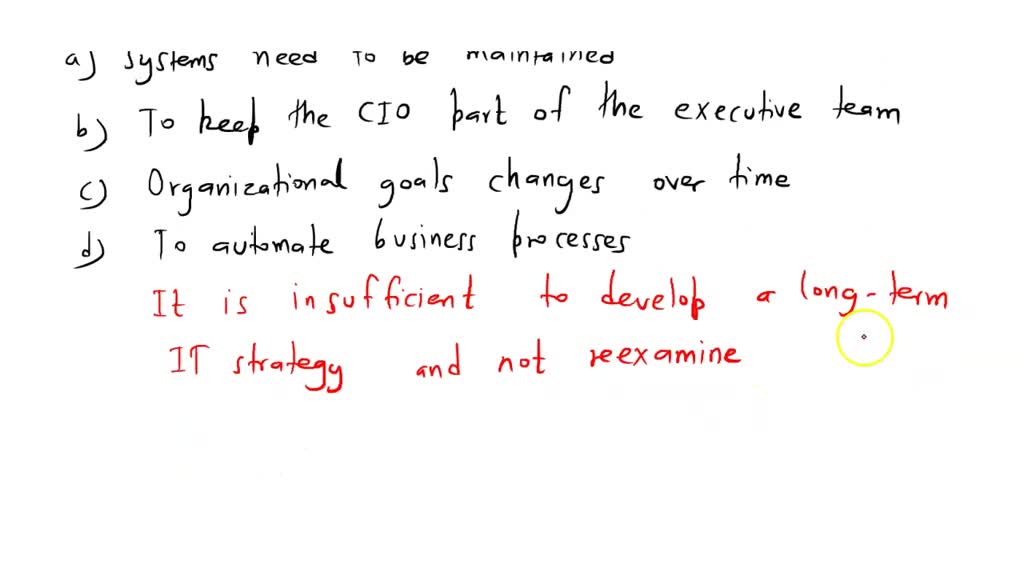 a) systems need to be maintained
b) To keep the CIO part of the executive team
c) Organizational goals changes over time
d) To automate business processes
It is insufficient to develop a long-term
IT strategy and not reexamine